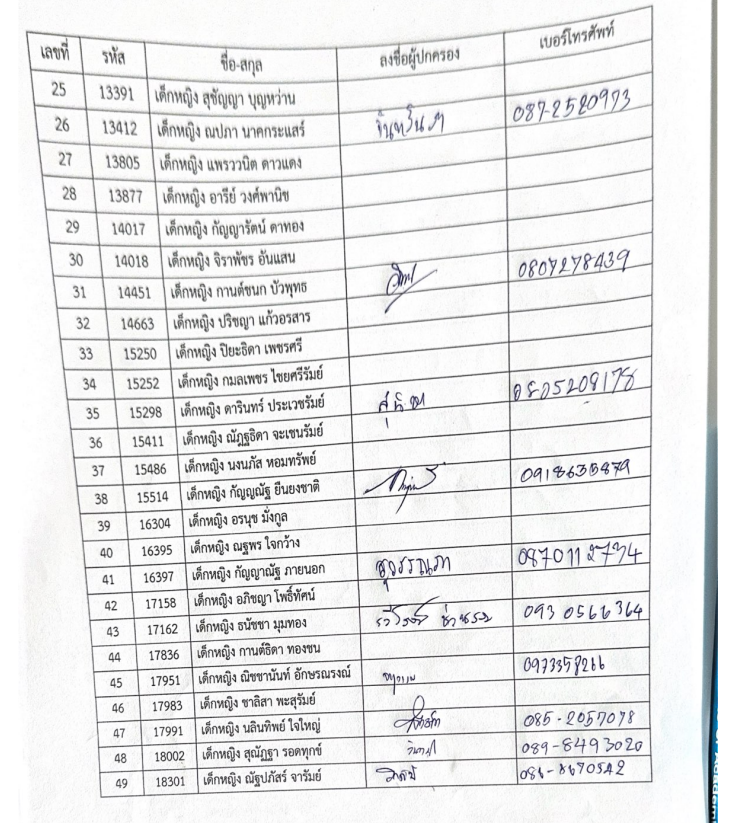 เลขที่ รหัส ชื่อ-สกุล ลงชื่อผู้ปกครอง เบอร์โทรศัพท์
25 13391 เด็กหญิง สุชัญญา บุญหว่าน
26 13412 เด็กหญิง ณปภา นาคกระแสร์ 087-2520973
27 13805 เด็กหญิง แพรววนิต ดาวแดง
28 13877 เด็กหญิง อารีย์ วงศ์พานิช
29 14017 เด็กหญิง กัญญารัตน์ ตาทอง
30 14018 เด็กหญิง จิราพัชร อันแสน
31 14451 เด็กหญิง กานต์ชนก บัวพุทธ 0807278439
32 14663 เด็กหญิง ปริชญา แก้วอรสาร
33 15250 เด็กหญิง ปิยะธิดา เพชรศรี
34 15252 เด็กหญิง กมลเพชร ไชยศรีรัมย์
35 15298 เด็กหญิง ดารินทร์ ประเวชรัมย์ 0805209178
36 15411 เด็กหญิง ณัฏฐธิดา จะเชนรัมย์
37 15486 เด็กหญิง นงนภัส หอมทรัพย์
38 15514 เด็กหญิง กัญญณัฐ ยืนยงชาติ 0918635879
39 16304 เด็กหญิง อรนุช มั่งกูล
40 16395 เด็กหญิง ณฐพร ใจกว้าง
41 16397 เด็กหญิง กัญญาณัฐ ภายนอก สุวรรณภา 0870112734
42 17158 เด็กหญิง อภิชญา โพธิ์ทัศน์
43 17162 เด็กหญิง ธนัชชา มุมทอง 093 0566364
44 17836 เด็กหญิง กานต์ธิดา ทองขน
45 17951 เด็กหญิง ณิชชานันท์ อักษรณรงณ์ 0973358266
46 17983 เด็กหญิง ชาลิสา พะสุรัมย์
47 17991 เด็กหญิง นลินทิพย์ ใจใหญ่ 085-2057078
48 18002 เด็กหญิง สุณัฏฐา รอดทุกข์ 089-8493020
49 18301 เด็กหญิง ณัฐปภัสร์ จารัมย์ 086-8670542